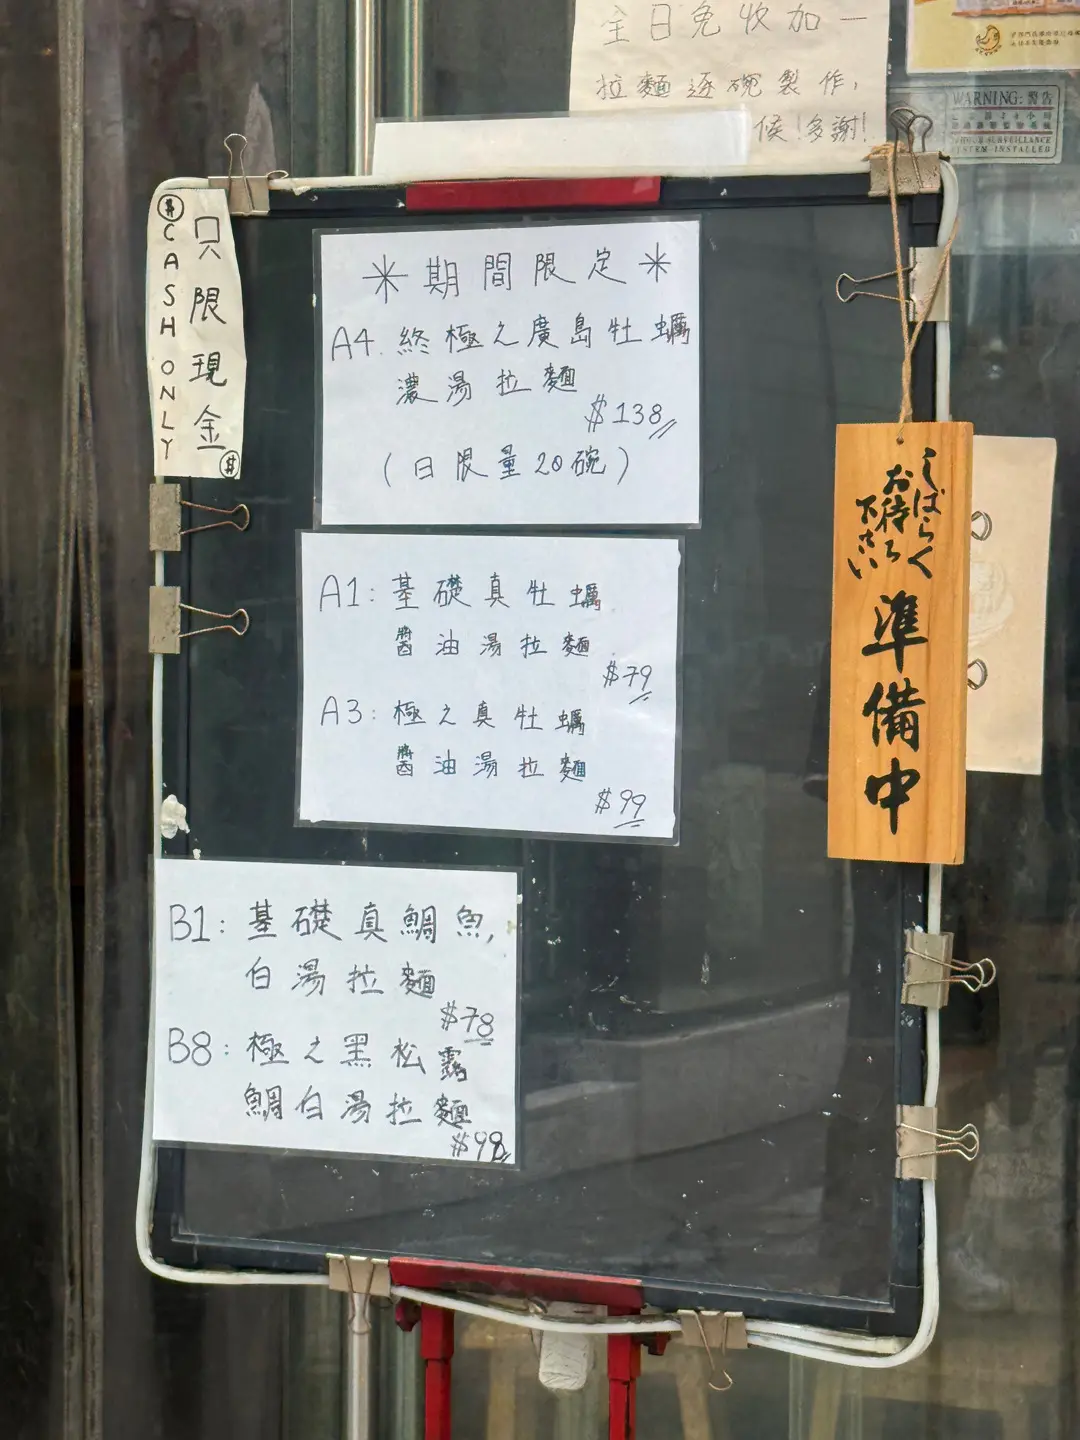 全日免收加一
拉麵逐碗製作,
候!多謝!
WARNING: 警告
24HOUR SURVEILLANCE
SYSTEM INSTALLED
$ CASH ONLY
只限現金 $
* 期間限定 *
A4. 終極之廣島牡蠣
濃湯拉麵
$138
(日限量20碗)
A1: 基礎真牡蠣
醬油湯拉麵
$79
A3: 極之真牡蠣
醬油湯拉麵
$99
B1: 基礎真鯛魚,
白湯拉麵
$78
B8: 極之黑松露
鯛白湯拉麵
$98
しばらく
お待ち
下さい
準備中